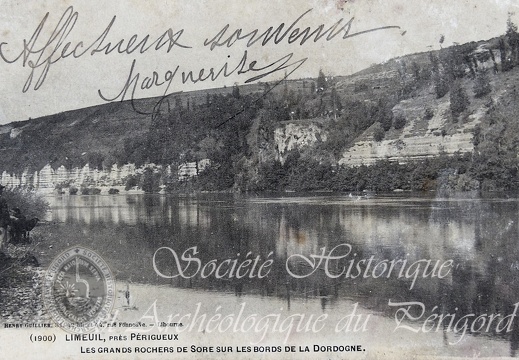 Affectueux souvenir
Marguerite
Société Historique
et Archéologique du Périgord
HENRY GUILLIER, Libourne
(1900) LIMEUIL, PRÈS PÉRIGUEUX
LES GRANDS ROCHERS DE SORE SUR LES BORDS DE LA DORDOGNE.